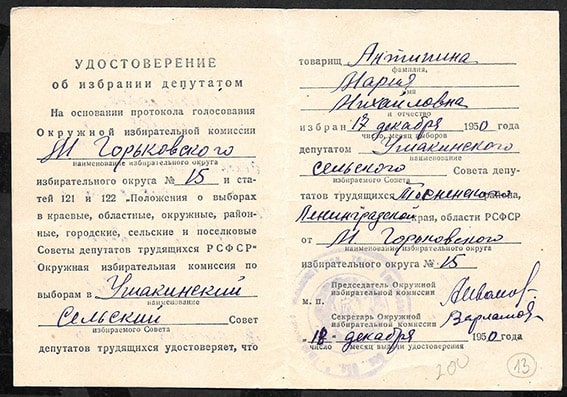 УДОСТОВЕРЕНИЕ
об избрании депутатом
На основании протокола голосования
Окружной избирательной комиссии
М Горьковского
наименование избирательного округа
избирательного округа № 15 и ста-
тей 121 и 122 „Положения о выборах
в краевые, областные, окружные, район-
ные, городские, сельские и поселковые
Советы депутатов трудящихся РСФСР"
Окружная избирательная комиссия по
выборам в Ушакинский
наименование
Сельский Совет
избираемого Совета
депутатов трудящихся удостоверяет, что
товарищ Антипина
фамилия,
Мария
имя
Михайловна
и отчество
избран 17 декабря 1950 года
число, месяц выборов
депутатом Ушакинского
наименование
сельского Совета депу-
избираемого Совета
татов трудящихся Тосненского района,
Ленинградской края, области РСФСР
от М Горьковского
наименование избирательного округа
избирательного округа № 15
Председатель Окружной
избирательной комиссии
М. П.
Секретарь Окружной
избирательной комиссии
18 - декабря 1950 года
число месяц выдачи удостоверения
200
13